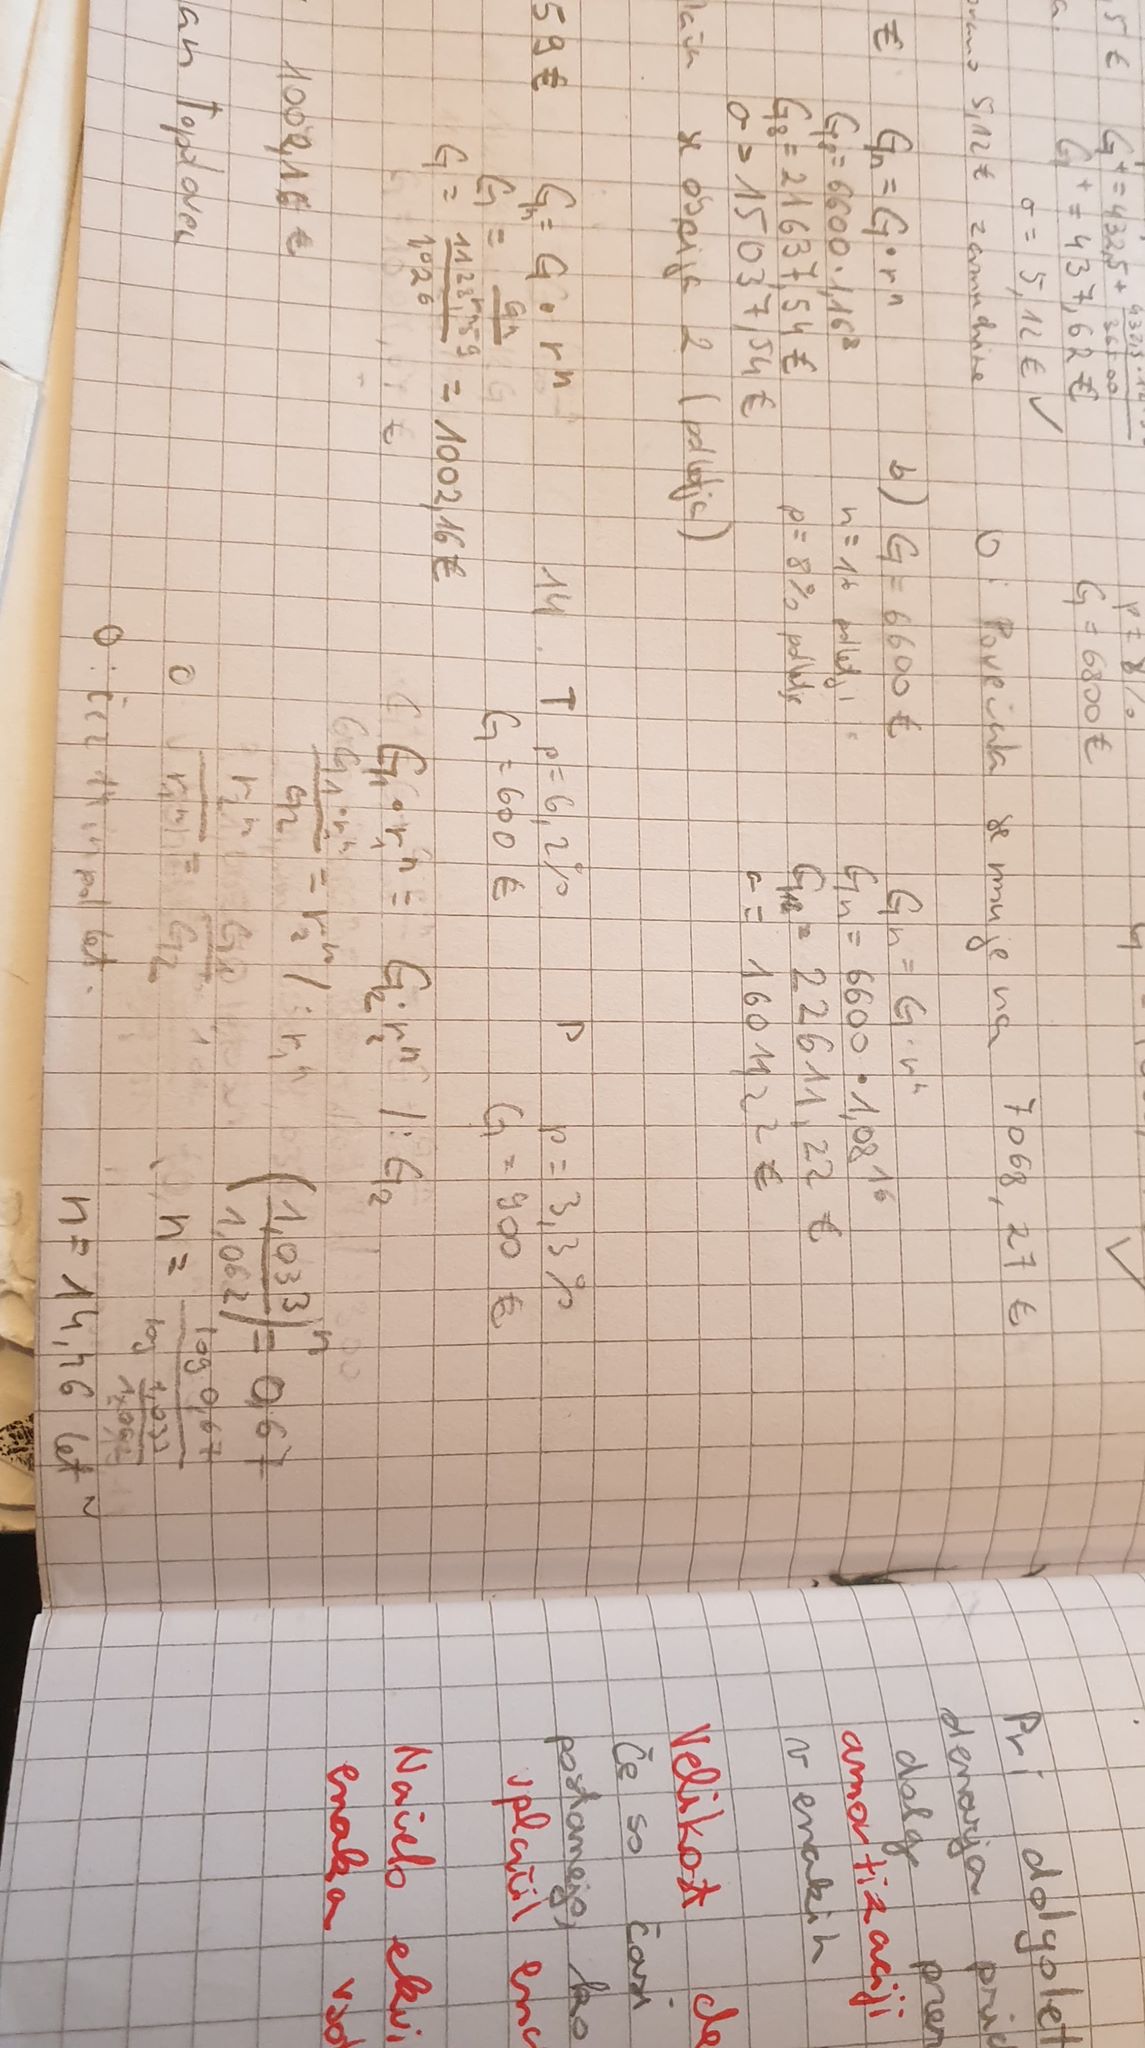 5 € G⁺ = 432,5 +
G⁺ = 437,62 €
o = 5,12 € ✓
5,12 € zamudnine
p = 8%
G = 6800 €
✓
O: Povečala se mu je na 7068,27 €
€ Gn = G · rⁿ
G8 = 6600 · 1,16⁸
G8 = 21637,54 €
o = 15037,54 €
se obrija 2 (polletja)
b) G = 6600 €
n = 16 polletji
p = 8% polletje
Gn = G · rⁿ
Gn = 6600 · 1,08¹⁶
G16 = 22611,22 €
o = 16011,22 €
59 € Gn = G · rⁿ
G = Gn / rⁿ
G = 1128,59 / 1,02⁶ = 1002,16 €
€
1002,16 €
an Topdovec
14. T p = 6,2%
G = 600 €
P p = 3,3%
G = 900 €
G1 · r1ⁿ = G2 · r2ⁿ /: G2
G1 · r1ⁿ / G2 = r2ⁿ /: r1ⁿ
r2ⁿ / r1ⁿ = G1 / G2
O: čez 14 in pol let.
(1,033 / 1,062)ⁿ = 0,67
n = log 0,67 / log 1,033 / 1,062
n = 14,46 let
Pri dolgolet
denarja prid
dolg prem
amortizaciji
v enakih
Velikost de
Če so časi
postanejo, ko
vplačil ena
Načelo ekvi
enaka vso